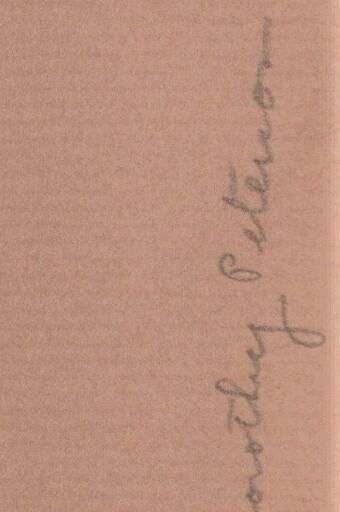 orothy Peterson